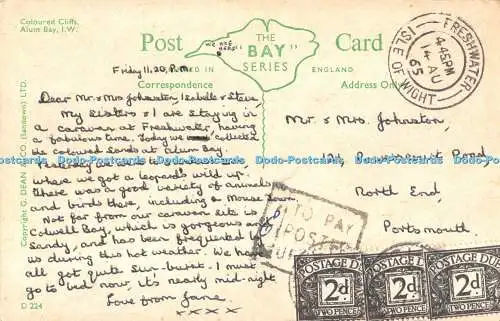 Coloured Cliffs,
Alum Bay, I.W.
Post Card
WE ARE HERE
THE "BAY" SERIES
PRINTED IN ENGLAND
Correspondence
Address Only
Friday 11.20. P.M.
Dear Mr. & Mrs Johnston, Isabelle & Steve,
My Sisters & I are staying in
a caravan at Freshwater, having
a fabulous time. Today we collected
coloured sands at Alum Bay.
Yesterday we went to
where we got a leopards wild up.
There was a good variety of animals
and birds there, including a Mouse Town.
Not far from our caravan site is
Colwell Bay, which is gorgeous and
Sandy, and has been frequented by
us during this hot weather. We have
all got quite sun-burst. I must
go to bed now, it's nearly mid-night
Love from Jane.
x x x x
Mr. & Mrs Johnston,
Devonshire Road
North End,
Portsmouth.
FRESHWATER
4 45 PM
14 AU
65
ISLE OF WIGHT
TO PAY
POSTAGE DUE
2d
TWO PENCE
POSTAGE DUE
2d
TWO PENCE
POSTAGE DUE
2d
TWO PENCE
Copyright G. DEAN & CO. (Sandown) LTD.
D 224
www.oldthing.de